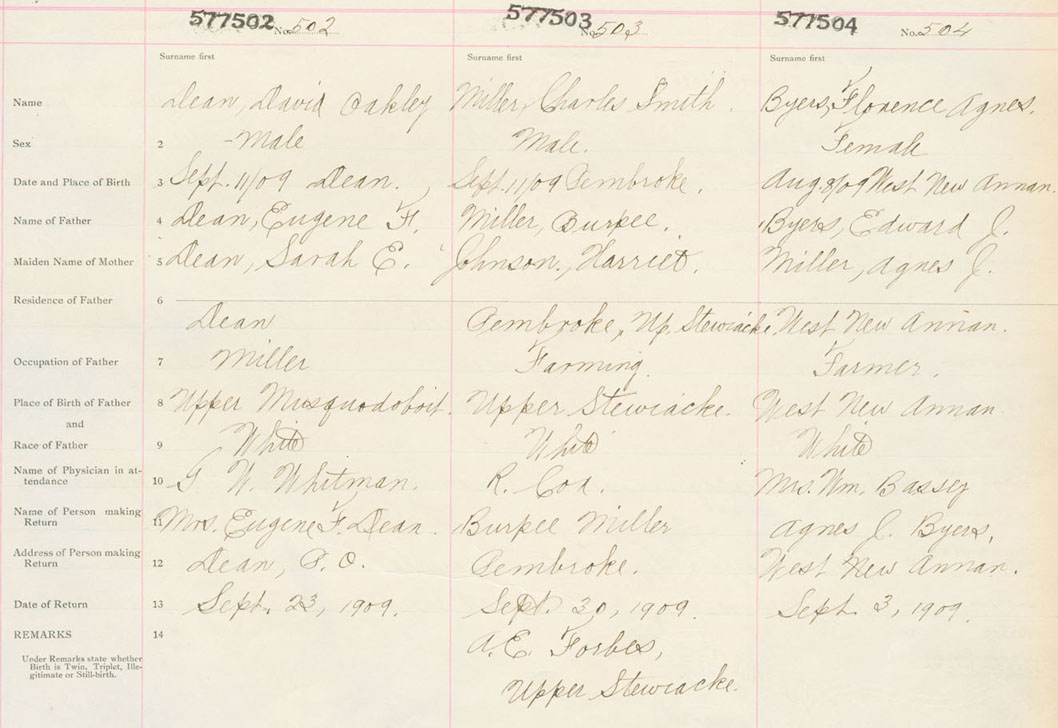 577502 No. 502 577503 No. 503 577504 No. 504
Surname first Surname first Surname first
Name Dean, David Oakley Miller, Charles Smith. Byers, Florence Agnes.
Sex 2 Male Male. Female
Date and Place of Birth 3 Sept. 11/09 Dean. Sept. 11/09 Pembroke. Aug. 8/09 West New Annan.
Name of Father 4 Dean, Eugene F. Miller, Burpee. Byers, Edward J.
Maiden Name of Mother 5 Dean, Sarah E. Johnson, Harriet. Miller, Agnes J.
Residence of Father 6
Dean Pembroke, Up. Stewiacke. West New Annan.
Occupation of Father 7 Miller Farming. Farmer.
Place of Birth of Father 8 Upper Musquodoboit. Upper Stewiacke. West New Annan
and
Race of Father 9 White White White
Name of Physician in at-
tendance 10 G. W. Whitman. R. Cox. Mrs. Wm. Bassey
Name of Person making
Return 11 Mrs. Eugene F. Dean. Burpee Miller Agnes J. Byers,
Address of Person making
Return 12 Dean, P.O. Pembroke. West New Annan.
Date of Return 13 Sept. 23, 1909. Sept. 30, 1909. Sept. 3, 1909.
REMARKS 14 A. E. Forbes,
Under Remarks state whether
Birth is Twin, Triplet, Ille-
gitimate or Still-birth.
Upper Stewiacke.